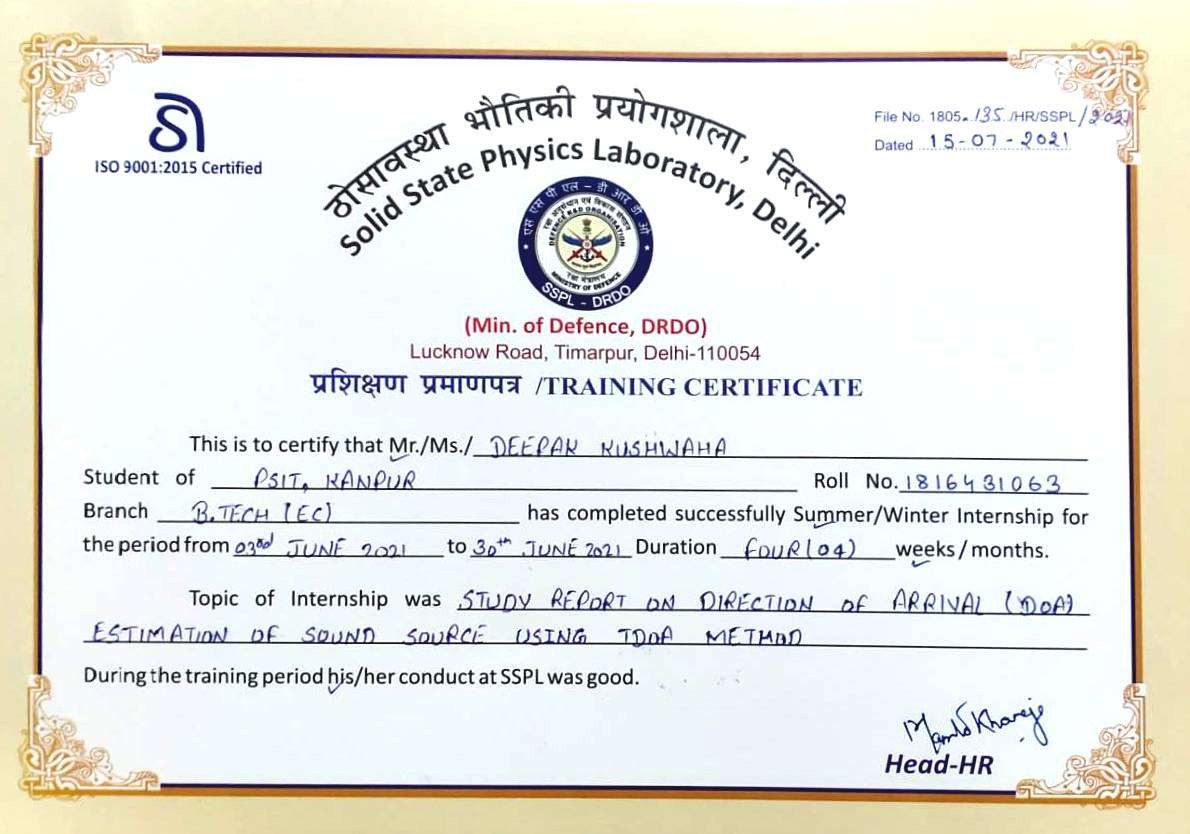 ISO 9001:2015 Certified
ठोसावस्था भौतिकी प्रयोगशाला, दिल्ली
Solid State Physics Laboratory, Delhi
File No. 1805-135./HR/SSPL/2021
Dated 15-07-2021
एस एस पी एल - डी आर डी ओ
रक्षा अनुसंधान एवं विकास संगठन
DEFENCE R&D ORGANISATION
रक्षा मंत्रालय
MINISTRY OF DEFENCE
SSPL - DRDO
(Min. of Defence, DRDO)
Lucknow Road, Timarpur, Delhi-110054
प्रशिक्षण प्रमाणपत्र /TRAINING CERTIFICATE
This is to certify that Mr./Ms./ DEEPAK KUSHWAHA
Student of PSIT, KANPUR Roll No. 1816431063
Branch B.TECH (EC) has completed successfully Summer/Winter Internship for
the period from 03rd JUNE 2021 to 30th JUNE 2021 Duration FOUR (04) weeks/months.
Topic of Internship was STUDY REPORT ON DIRECTION OF ARRIVAL (DOA)
ESTIMATION OF SOUND SOURCE USING TDOA METHOD
During the training period his/her conduct at SSPL was good.
Head-HR